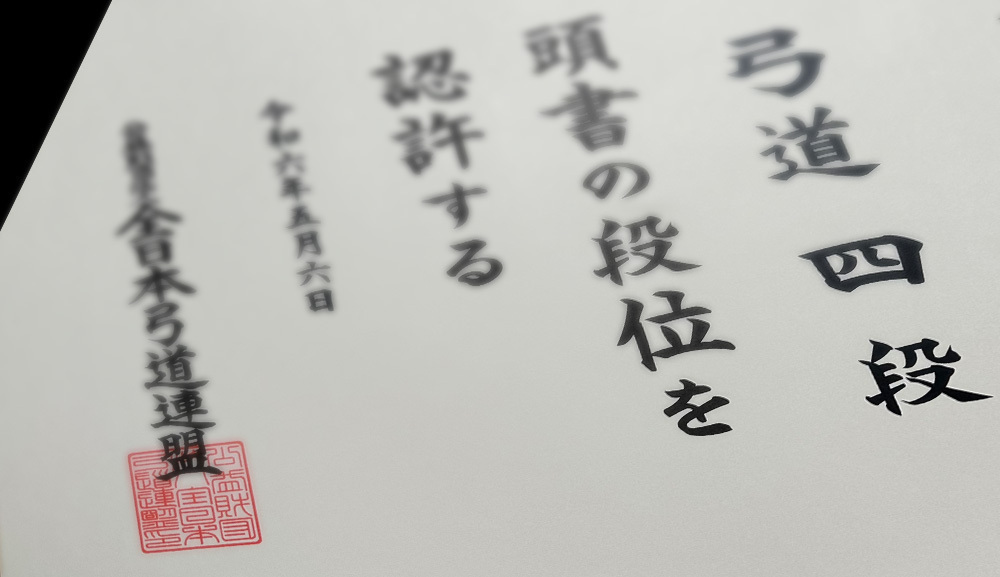 弓道四段
頭書の段位を
認許する
令和六年五月六日
公益財団法人全日本弓道連盟